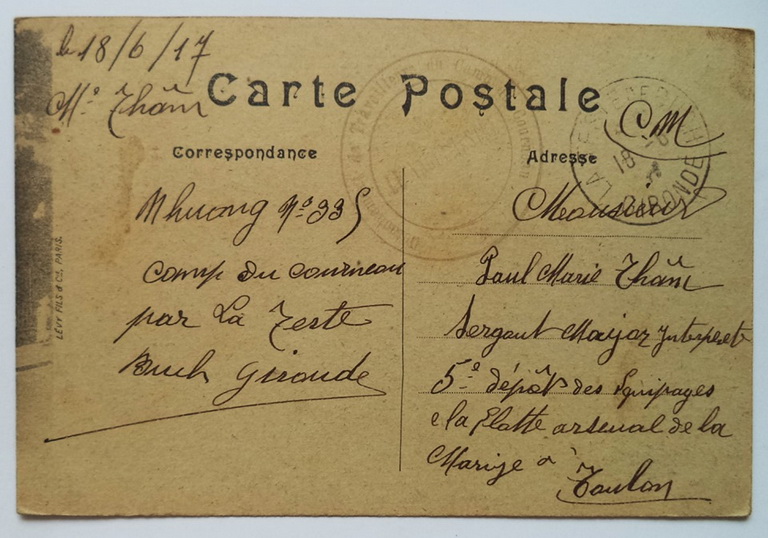 le 18/6/17
Mr Thâm
Carte Postale
CM
Correspondance
Adresse
Nhuong No 335
camp du courneau
par La Teste
Buch Gironde
Monsieur
Paul Marie Thâm
Sergent Major Interprete
5e dépôts des Equipages
la Flotte arsenal de la
Marine à
Toulon
LÉVY FILS & Cie, PARIS.
LA TESTE DE BUCH
18 -6
GIRONDE